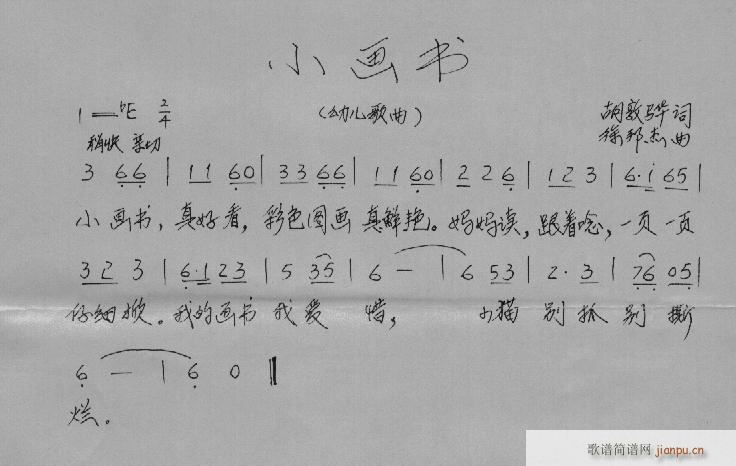 小画书
1=♭E 2/4 (幼儿歌曲) 胡敦骅 词
稍快 亲切 徐邦杰 曲
3 66 | 11 60 | 33 66 | 11 60 | 2 2 6 | 12 3 | 6·i 65 |
小画书，真好看，彩色图画真鲜艳。妈妈读，跟着念，一页一页
32 3 | 6·1 23 | 5 35 | 6 — | 6 53 | 2·3 | 76 05 |
仔细掀。我的画书我爱惜，小猫别抓别撕
6 — | 6 0 ‖
烂。
歌谱简谱网 jianpu.cn